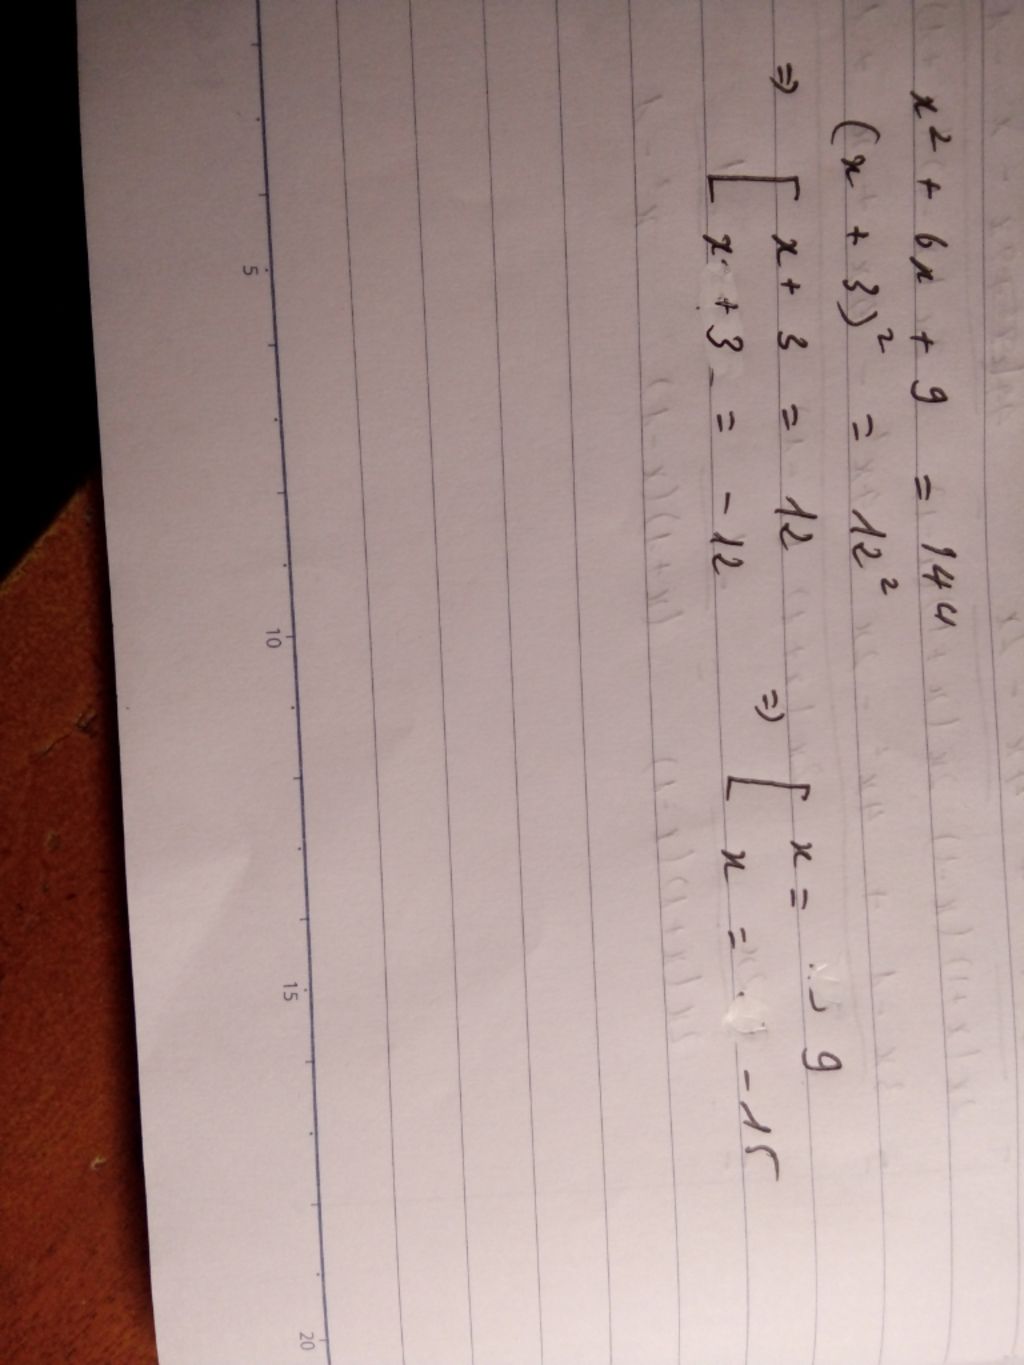 x² + 6x + 9 = 144
(x + 3)² = 12²
⇒ [ x + 3 = 12 ⇒ [ x = 9
[ x + 3 = -12 [ x = -15
5 10 15 20